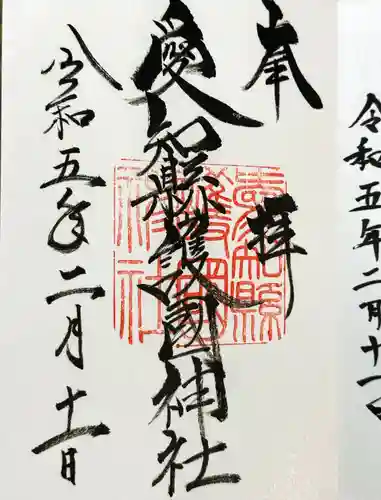 令和五年二月十一
奉拝
愛知縣護國神社
愛知縣護國神社
令和五年二月十一日